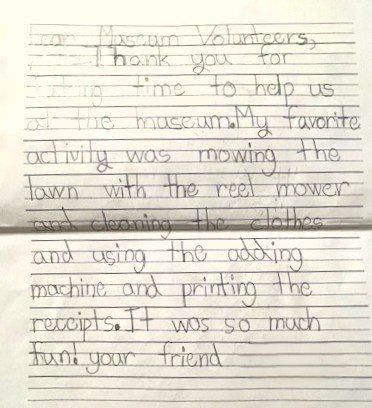 Dear Museum Volunteers,
Thank you for
taking time to help us
at the museum.My favorite
activity was mowing the
lawn with the reel mower
and cleaning the clothes
and using the adding
machine and printing the
receipts.It was so much
fun! your friend